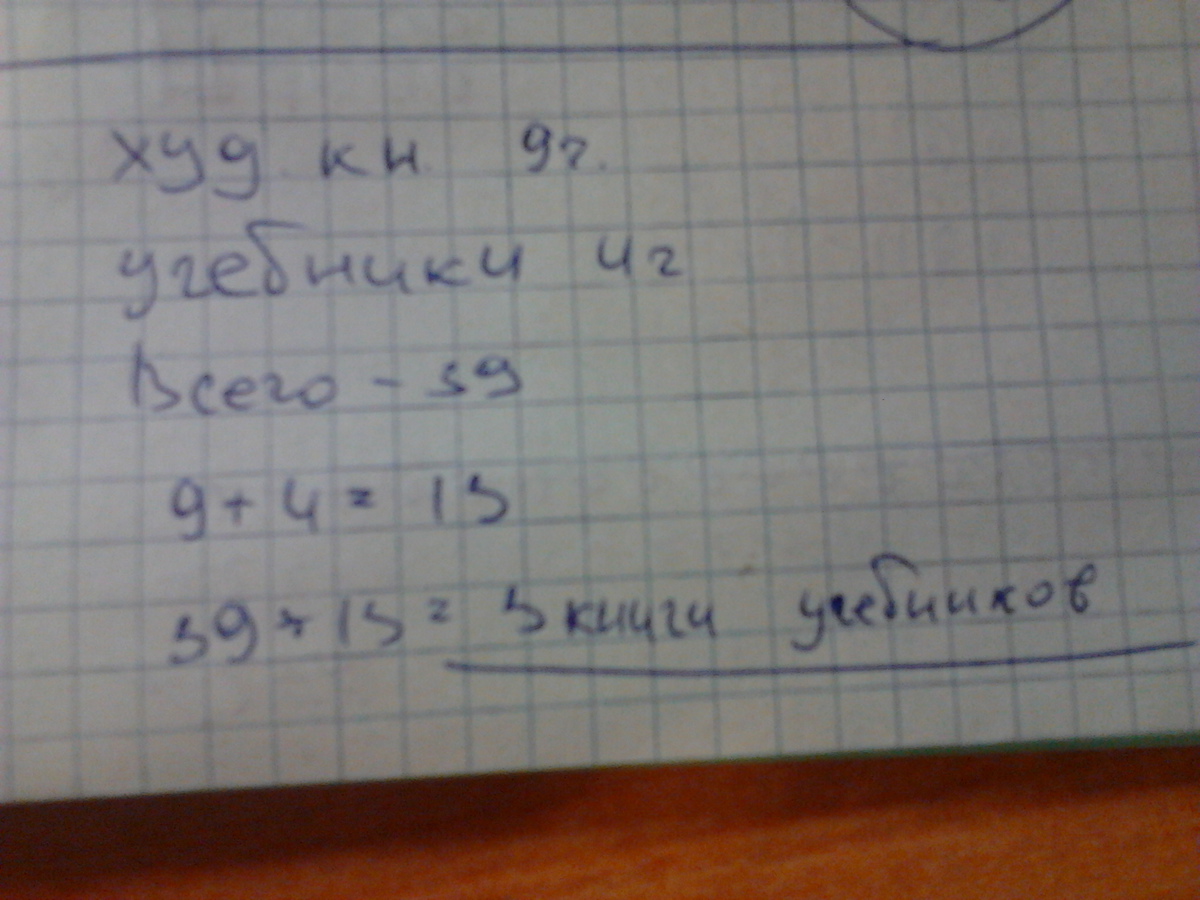 худ. кн. 9г.
учебники 4г
Всего - 39
9 + 4 = 13
39 ÷ 13 = 3 книги учебников